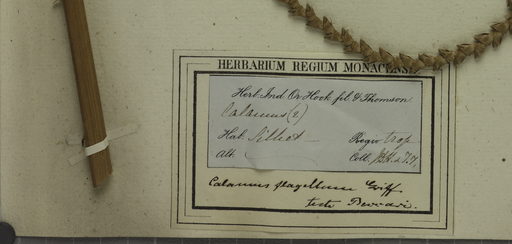 HERBARIUM REGIUM MONACENSE
Herb. Ind. Or. Hook. fil. & Thomson
Calamus (2)
Hab. Silhet Regio trop.
Alt. Coll. J.D.H. & T.T.
Calamus flagellum Griff.
teste Beccari.